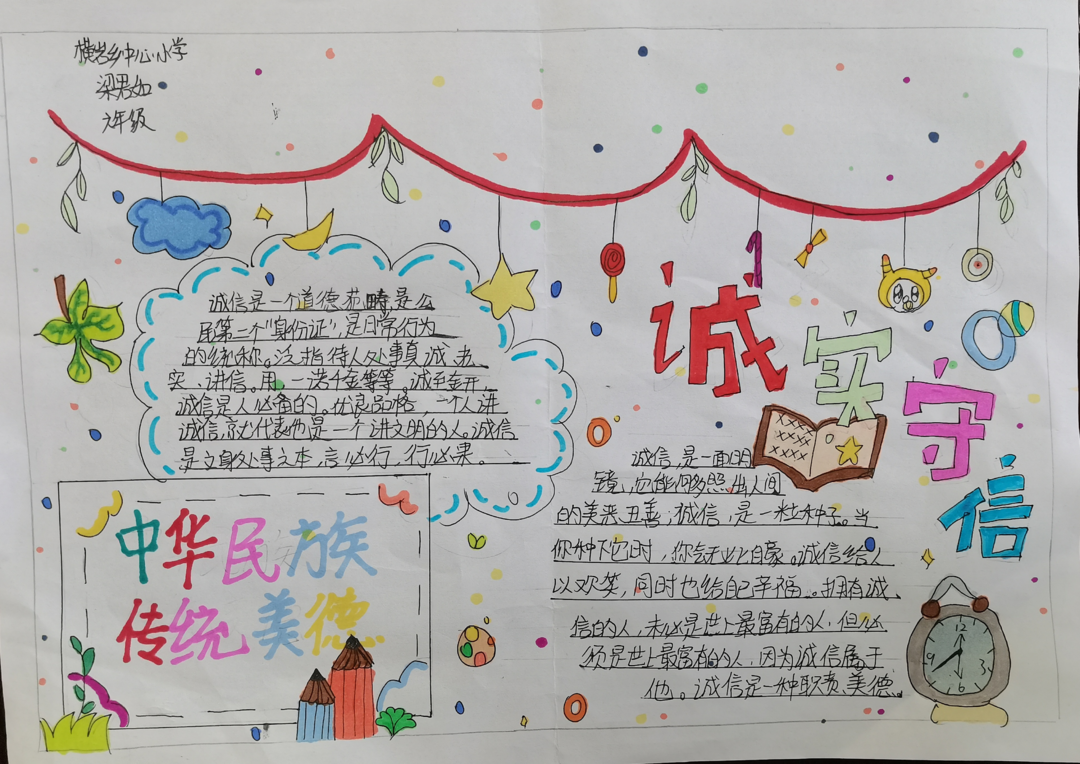 横岩乡中心小学
梁君如
六年级
诚信是一个道德范畴,是公
民第二个"身份证",是日常行为
的统称。泛指待人处事真诚、老
实、讲信。用,一诺千金等等。诚至金开,
诚信是人必备的。优良品格,一个人讲
诚信,就代表他是一个讲文明的人。诚信
是立身处事之本,言必行,行必果。
诚
实
守
信
诚信,是一面明
镜,它能够照出人间
的美恶丑善;诚信,是一粒种子。当
你种下它时,你会无比自豪。诚信给人
以欢笑,同时也给自己幸福。拥有诚
信的人,未必是世上最富有的人,但必
须是世上最富有的人,因为诚信属于
他。诚信是一种职责、美德。
中华民族
传统美德
12
3
6
9